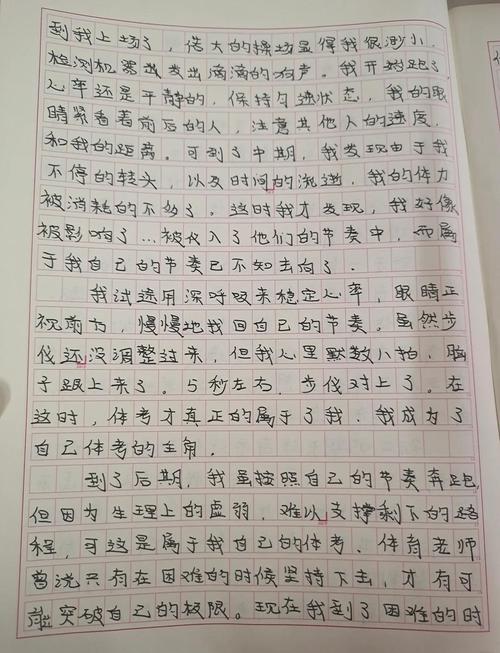 到我上场了，偌大的操场显得我很渺小，
检测机器越发出滴滴的响声。我开始跑了，
心率还是平静的，保持匀速状态，我的眼
睛紧看着前后的人，注意其他人的速度，
和我的距离。可到了中期，我发现由于我
不停的转头，以及时间的流逝，我的体力
被消耗的不够了。这时我才发现，我好像
被影响了…被仪入了他们的节奏中，而属
于我自己的节奏已不知去向了．
我试途用深呼吸来稳定心率，眼睛正
视前方，慢慢地找回自己的节奏。虽然步
伐还没调整过来，但我心里默数八拍，脑
子跟上来了。5秒左右．步伐对上了。在
这时，体考才真正的属于了我．我成为了
自己体考的主角．
到了后期，我虽按照自己的节奏奔跑，
但因为生理上的虚弱．难以支撑剩下的路
程，可这是属于我自己的体考．体育老师
曾说只有在困难的时候坚持下去，才有可
能突破自己的极限。现在我到了困难的时